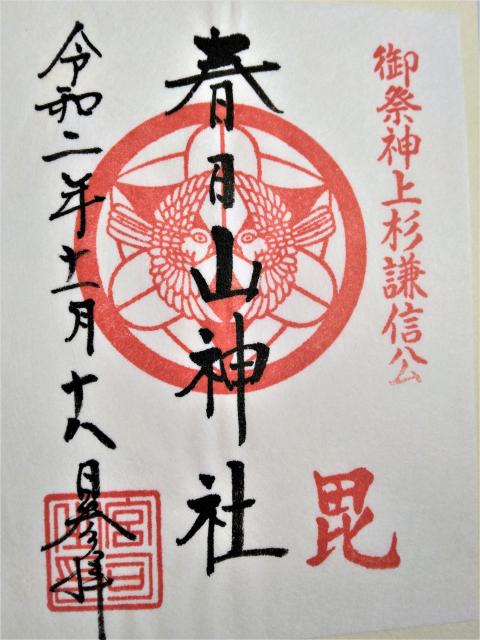 御祭神上杉謙信公
毘
春日山神社
令和二年十一月十八日参拝